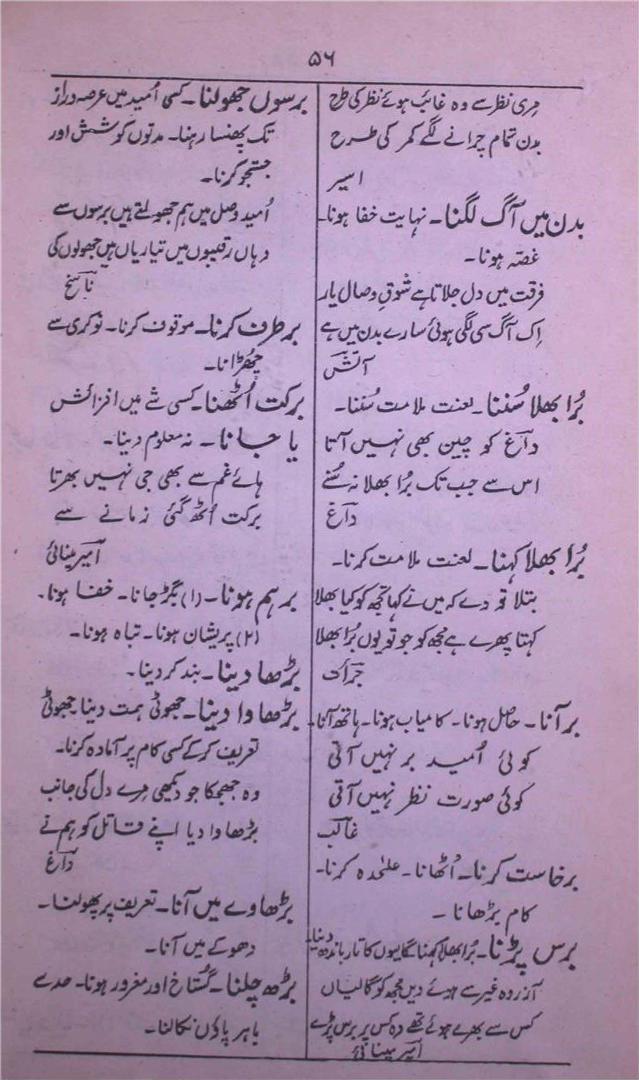 ۵۶
مری نظر سے وہ غائب ہوئے نظر کی طرح
بدن تمام چرانے لگے کمر کی طرح
اسیر
بدن میں آگ لگنا۔ نہایت خفا ہونا۔
غصّہ ہونا۔
فرقت میں دل جلاتا ہے شوقِ وصال یار
اِک آگ سی لگی ہوئی سارے بدن میں ہے
آتش
بُرا بھلا سُننا۔ لعنت ملامت سُننا۔
داغ کو چین بھی نہیں آتا
اس سے جب تک بُرا بھلا نہ سُنے
داغ
بُرا بھلا کہنا۔ لعنت ملامت کرنا۔
بتلا تو دے کہ میں نے کہا تجھ کو کیا بھلا
کہتا پھرے ہے مجھ کو جو تو یوں بُرا بھلا
جرأت
بر آنا۔ حاصل ہونا۔ کامیاب ہونا۔ ہاتھ آنا۔
کوئی اُمید بر نہیں آتی
کوئی صورت نظر نہیں آتی
غالب
برخاست کرنا۔ اُٹھانا۔ علیحدہ کرنا۔
کام بڑھانا۔
برس پڑنا۔ بُرا بھلا کہنا گالیوں کا تار باندھ دینا۔
آزردہ غیر سے ہوئے دیں مجھ کو گالیاں
کس سے بھرے ہوئے تھے وہ کس پر برس پڑے
امیر مینائی
برسوں جھولنا۔ کسی اُمید میں عرصہ دراز
تک پھنسا رہنا۔ مدتوں کوشش اور
جستجو کرنا۔
اُمید وصل میں ہم جھولتے ہیں برسوں سے
وہاں رقیبوں میں تیاریاں ہیں جھولوں کی
ناسخ
برطرف کرنا۔ موقوف کرنا۔ نوکری سے
چھڑانا۔
برکت اُٹھنا۔ کسی شے میں افزائش
یا جانا۔ نہ معلوم دینا۔
ہائے غم سے بھی جی نہیں بھرتا
برکت اُٹھ گئی زمانے سے
امیر مینائی
برہم ہونا۔ (۱) بگڑ جانا۔ خفا ہونا۔
(۲) پریشان ہونا۔ تباہ ہونا۔
بڑھا دینا۔ بند کر دینا۔
بڑھاوا دینا۔ جھوٹی ہمت دینا جھوٹی
تعریف کرکے کسی کام پر آمادہ کرنا۔
وہ جھجکا جو دیکھی مرے دل کی جانب
بڑھاوا دیا اپنے قاتل کو ہم نے
داغ
بڑھاوے میں آنا۔ تعریف پر پھولنا۔
دھوکے میں آنا۔
بڑھ چلنا۔ گستاخ اور مغرور ہونا۔ حد سے
باہر پاؤں نکالنا۔